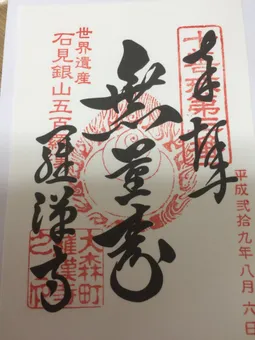 奉拝
平成弐拾九年八月六日
無量寿
世界遺産
石見銀山五百羅漢
羅漢寺
大森町